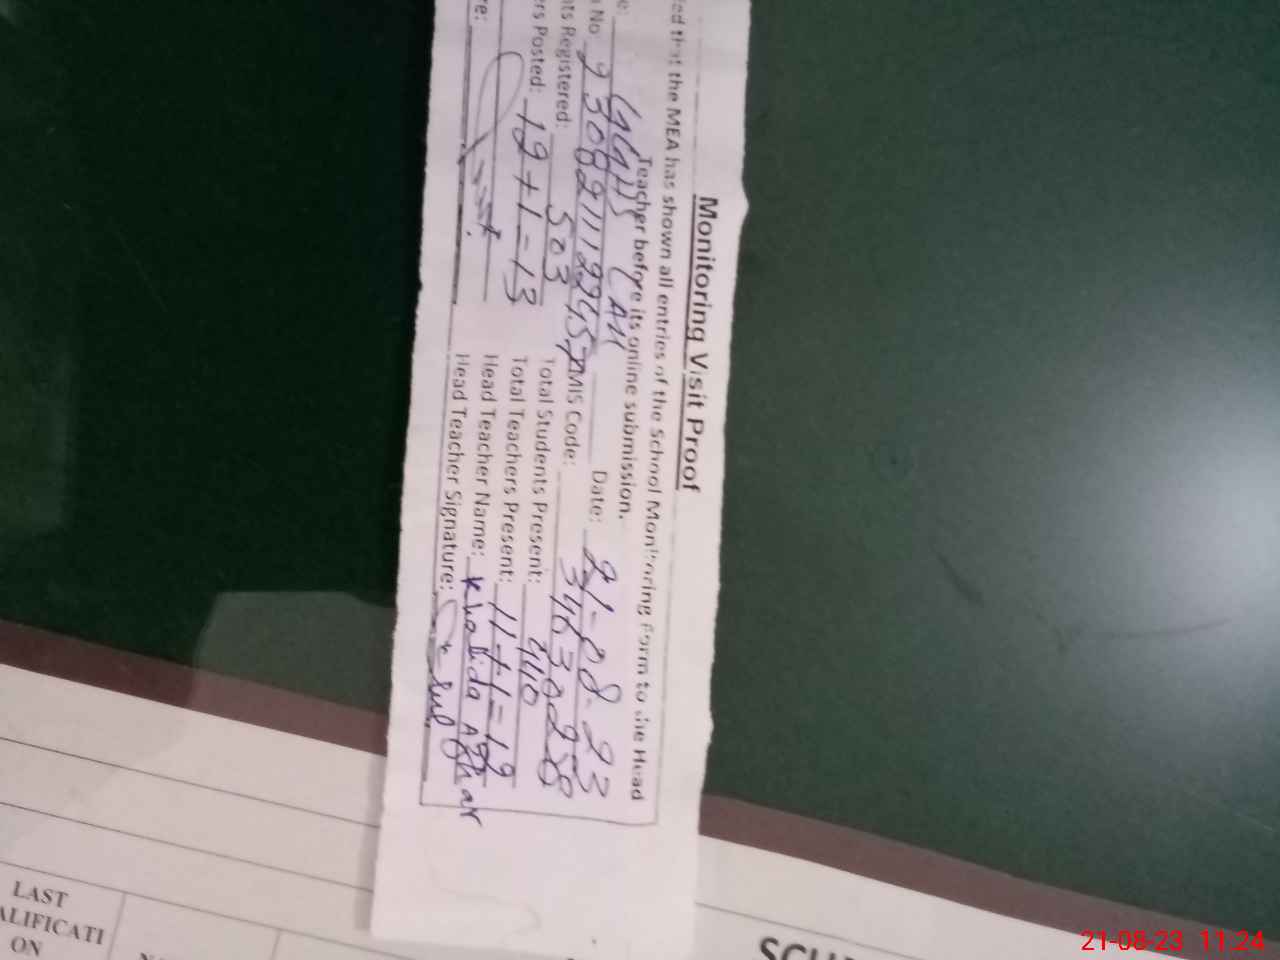 Monitoring Visit Proof
the MEA has shown all entries of the School Monitoring Form to the Head
Teacher before its online submission.
GGHS Date: 21-08-23
No EMIS Code: 34630258
ts Registered: 503 Total Students Present: 410
rs Posted: 12+1=13 Total Teachers Present: 11+1=12
Head Teacher Name: Khalida Asghar
re: Head Teacher Signature:
LAST
ALIFICATI
ON
21-08-23 11:24